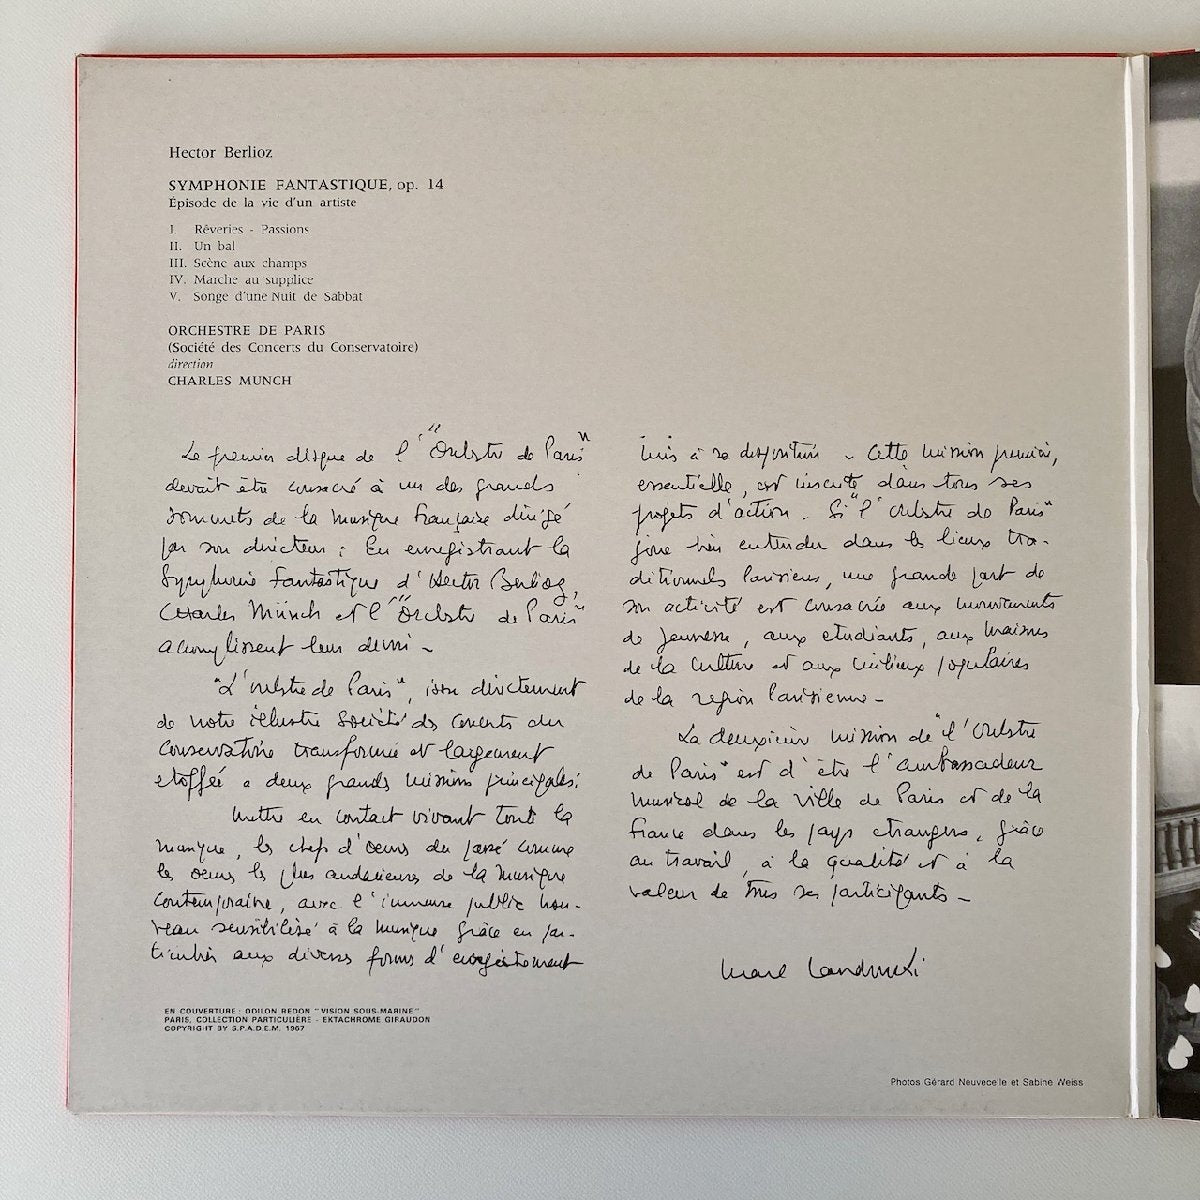 Hector Berlioz
SYMPHONIE FANTASTIQUE, op. 14
Épisode de la vie d'un artiste
I. Rêveries - Passions
II. Un bal
III. Scène aux champs
IV. Marche au supplice
V. Songe d'une Nuit de Sabbat
ORCHESTRE DE PARIS
(Société des Concerts du Conservatoire)
direction
CHARLES MUNCH
Le premier disque de l'"Orchestre de Paris"
devait être consacré à un des grands
sommets de la musique française dirigé
par son directeur : En enregistrant la
Symphonie fantastique d'Hector Berlioz,
Charles Münch et l'"Orchestre de Paris"
accomplissent leur devoir -
"L'orchestre de Paris", issu directement
de notre illustre Société des concerts du
Conservatoire transformée et largement
étoffée a deux grandes missions principales :
Mettre en contact vivant toute la
musique, les chefs d'œuvre du passé comme
les œuvres les plus audacieuses de la musique
contemporaine, avec l'immense public nou-
veau sensibilisé à la musique grâce en par-
ticulier aux diverses formes d'enregistrement
mis à sa disposition - Cette mission première,
essentielle, est inscrite dans tous ses
projets d'action. Si "l'Orchestre de Paris"
joue bien entendu dans les lieux tra-
ditionnels Parisiens, une grande part de
son activité est consacrée aux mouvements
de jeunesse, aux étudiants, aux maisons
de la culture et aux milieux populaires
de la région Parisienne -
La deuxième mission de "l'Orchestre
de Paris" est d'être l'ambassadeur
musical de la ville de Paris et de la
France dans les pays étrangers, grâce
au travail, à la qualité et à la
valeur de tous ses participants -
Marcel Landowski
EN COUVERTURE : ODILON REDON "VISION SOUS-MARINE"
PARIS, COLLECTION PARTICULIÈRE - EKTACHROME GIRAUDON
COPYRIGHT BY S.P.A.D.E.M. 1967
Photos Gérard Neuvecelle et Sabine Weiss